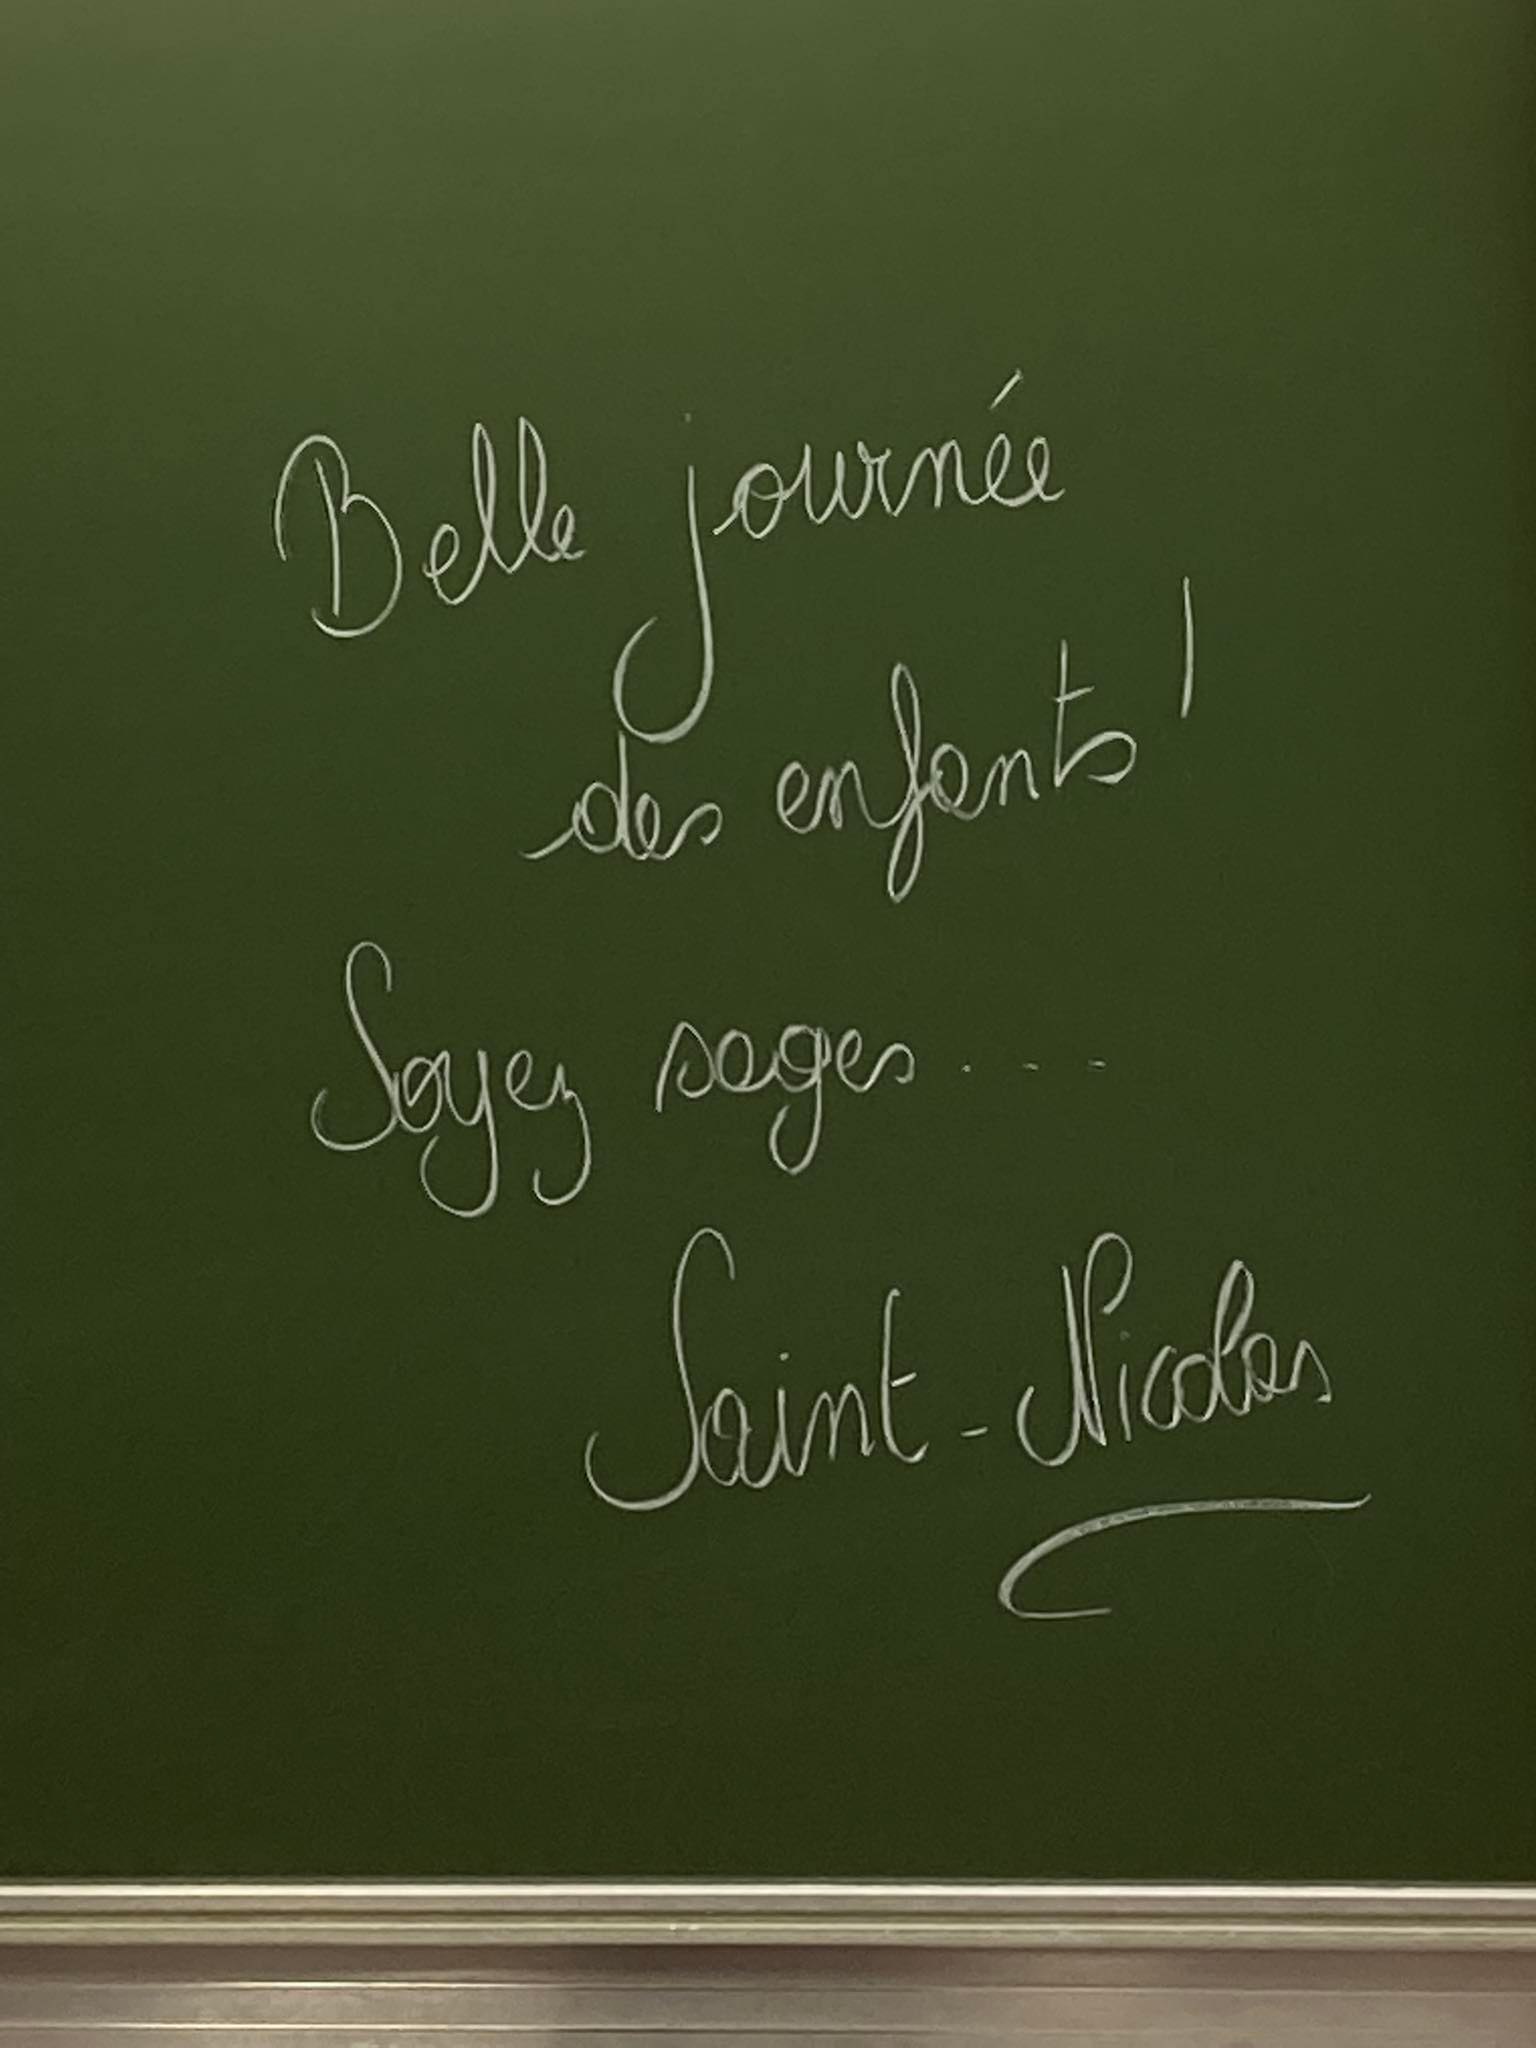 Belle journée
des enfants !
Soyez sages...
Saint-Nicolas